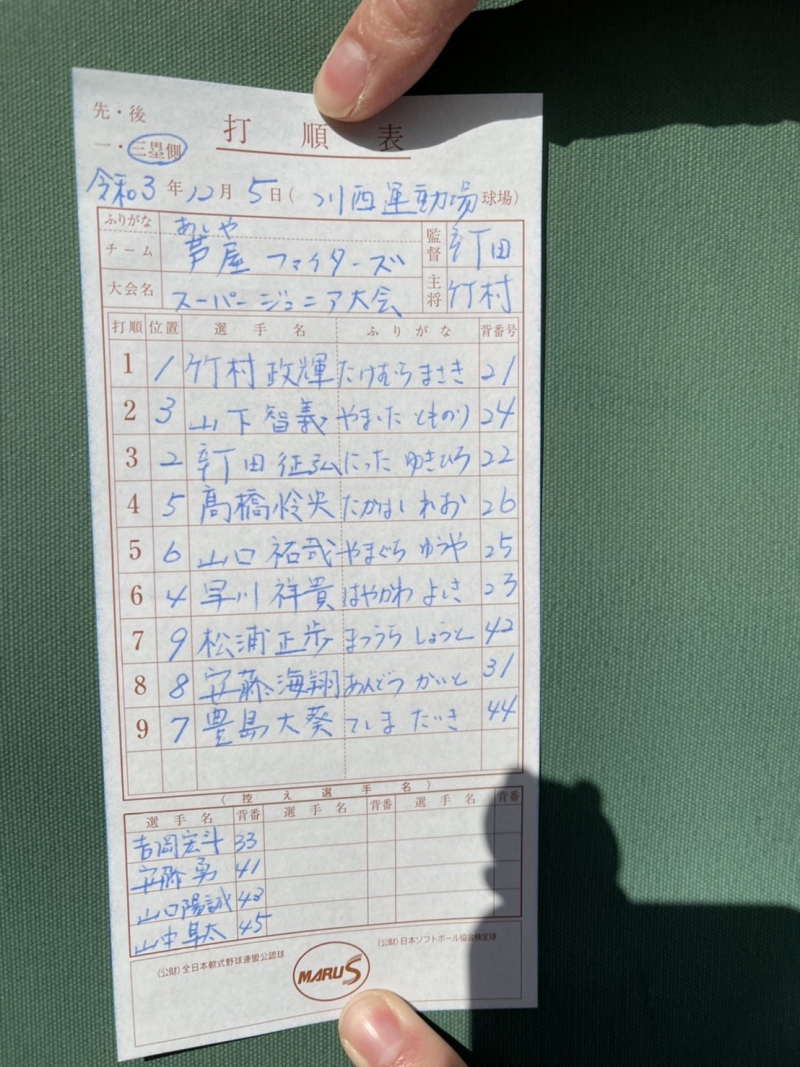 先・後
打順表
一・三塁側
令和3年12月5日(川西運動場球場)
ふりがな あしや
チーム 芦屋ファイターズ 監督 新田
大会名 スーパージュニア大会 主将 竹村
打順 位置 選手名 ふりがな 背番号
1 1 竹村政輝 たけむらまさき 21
2 3 山下智義 やましたとものり 24
3 2 新田征弘 にったゆきひろ 22
4 5 髙橋怜央 たかはしれお 26
5 6 山口祐哉 やまぐちゆうや 25
6 4 早川祥貴 はやかわよしき 23
7 9 松浦正歩 まつうらしょうと 42
8 8 安藤海翔 あんどうかいと 31
9 7 豊島大葵 てしまだいき 44
(控え選手名)
選手名 背番 選手名 背番 選手名 背番
吉岡宏斗 33
安藤勇 41
山口陽誠 43
山中阜太 45
(公財)全日本軟式野球連盟公認球 MARUS (公財)日本ソフトボール協会検定球